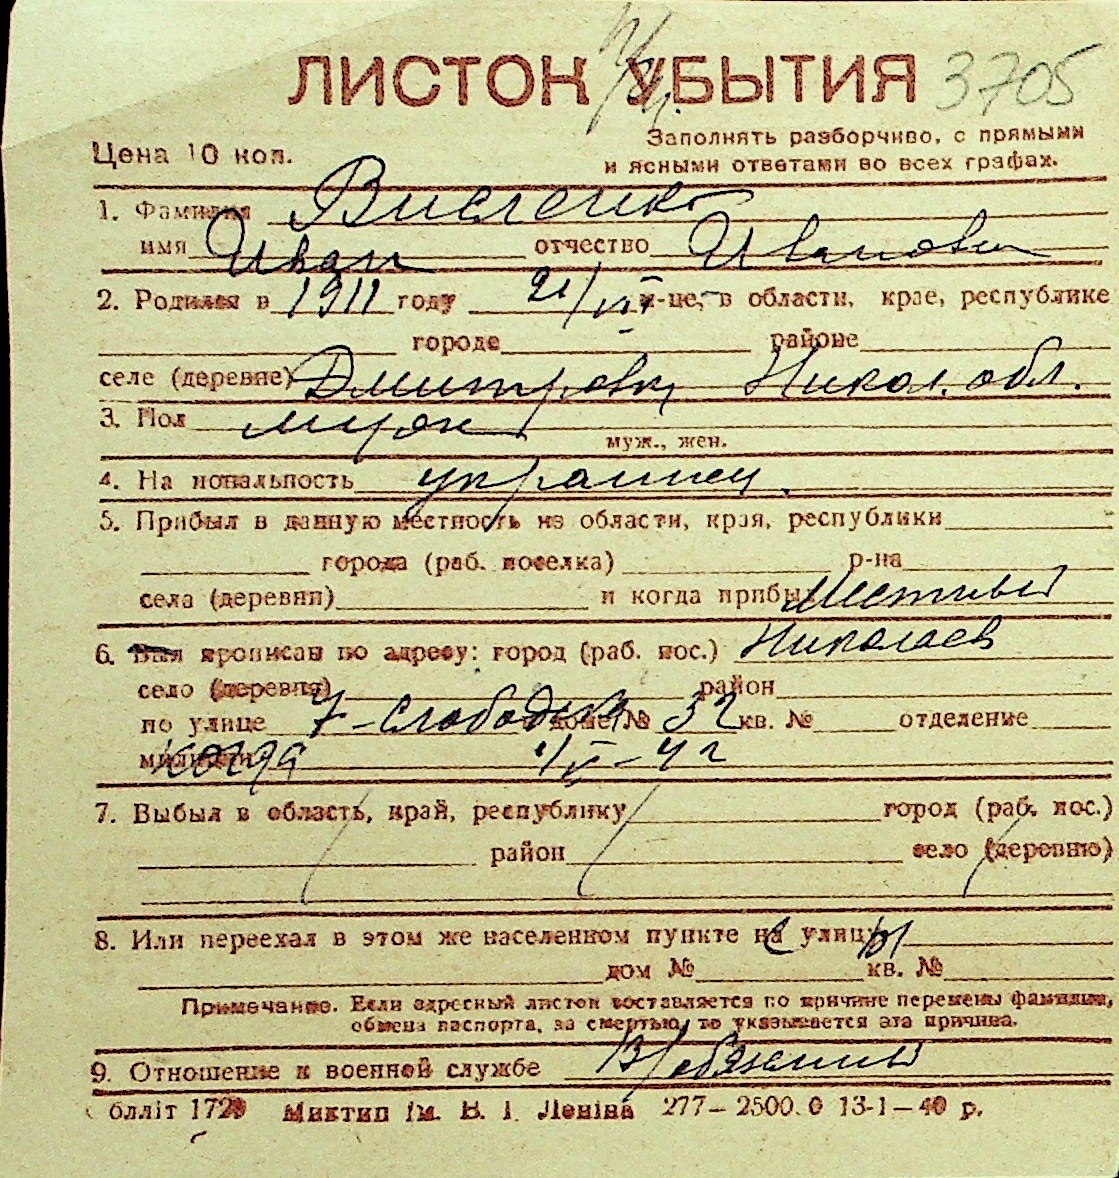 ЛИСТОК УБЫТИЯ 3705
Цена 10 коп.
Заполнять разборчиво, с прямыми
и ясными ответами во всех графах.
1. Фамилия
имя Иван отчество Иванович
2. Родился в 1911 году 21/VII м-це, в области, крае, республике
городе районе
селе (деревне) Дмитровка Никол. обл.
3. Пол муж
муж., жен.
4. Национальность украинец.
5. Прибыл в данную местность из области, края, республики
города (раб. поселка) р-на
села (деревни) и когда прибыл местный
6. Был прописан по адресу: город (раб. пос.) Николаев
село (деревня) район
по улице 7-Слободская доме № 32 кв. № отделение
милиции когда
7. Выбыл в область, край, республику город (раб. пос.)
район село (деревню)
8. Или переехал в этом же населенном пункте на улицу
дом № кв. №
Примечание. Если адресный листок составляется по причине перемены фамилии,
обмена паспорта, за смертью, то указывается эта причина.
9. Отношение к военной службе В/обязанный
блліт 1729 Миктип ім. В. І. Леніна 277—2500.0 13-1—40 р.